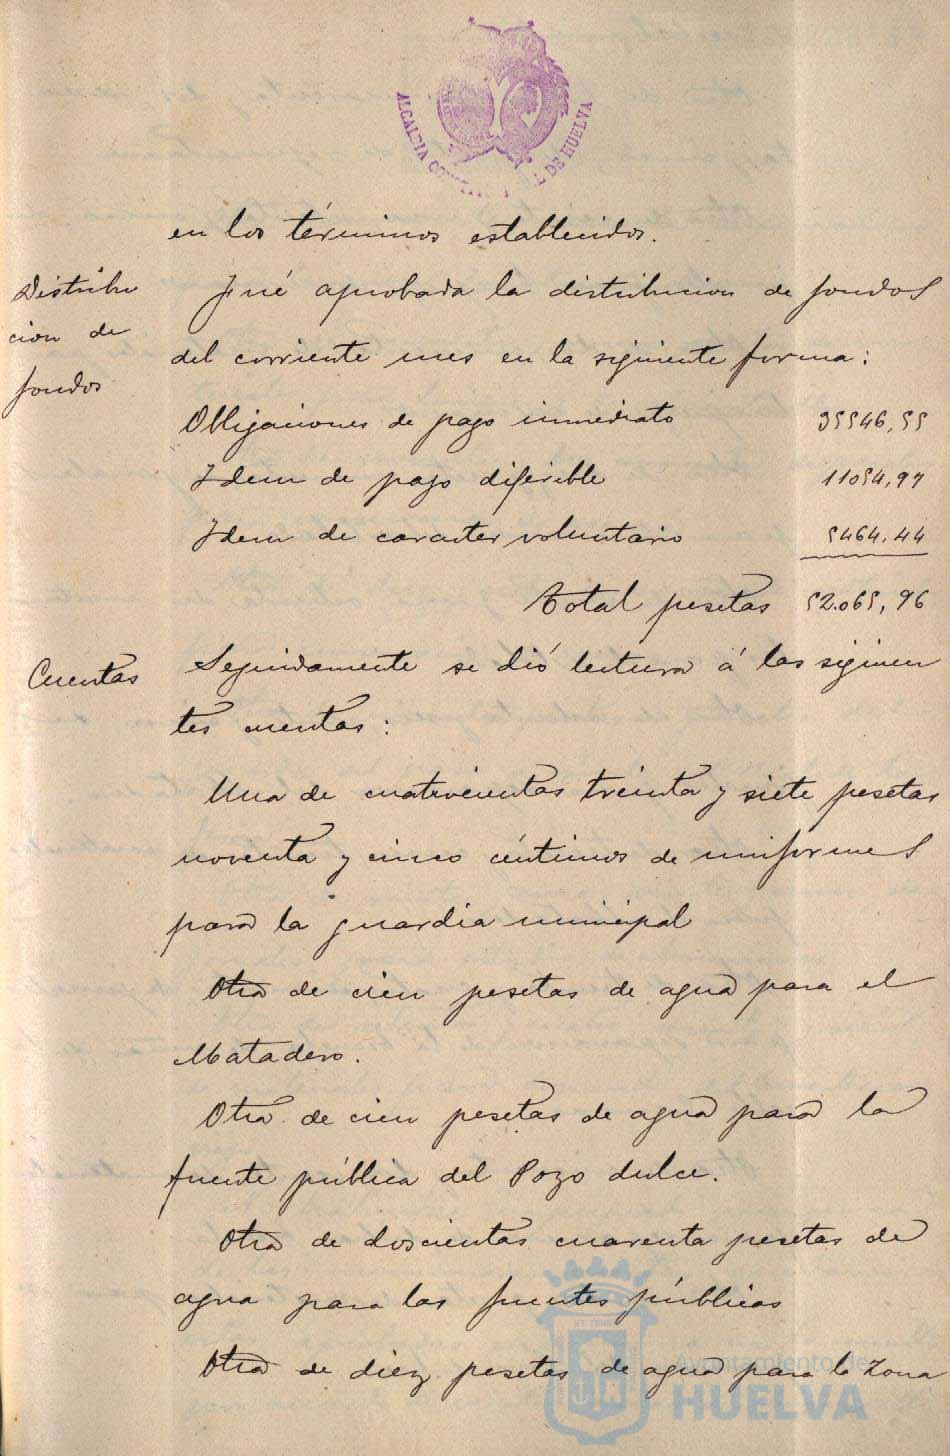 ALCALDIA CO L DE HUELVA
en los términos establecidos.
Distribu
cion de
fondos
Fué aprobada la distribucion de fondos
del corriente mes en la siguiente forma:
Obligaciones de pago inmediato 35546,55
Idem de pago diferible 11054,97
Idem de caracter voluntario 5464,44
Total pesetas 52.065,96
Cuentas
Seguidamente se dió lectura á las siguien
tes cuentas:
Una de cuatrocientas treinta y siete pesetas
noventa y cinco céntimos de uniformes
para la guardia municipal
Otra de cien pesetas de agua para el
Matadero.
Otra de cien pesetas de agua para la
fuente pública del Pozo dulce.
Otra de doscientas cuarenta pesetas de
agua para las fuentes públicas
Otra de diez pesetas de agua para la Zona
Ayuntamiento de
HUELVA